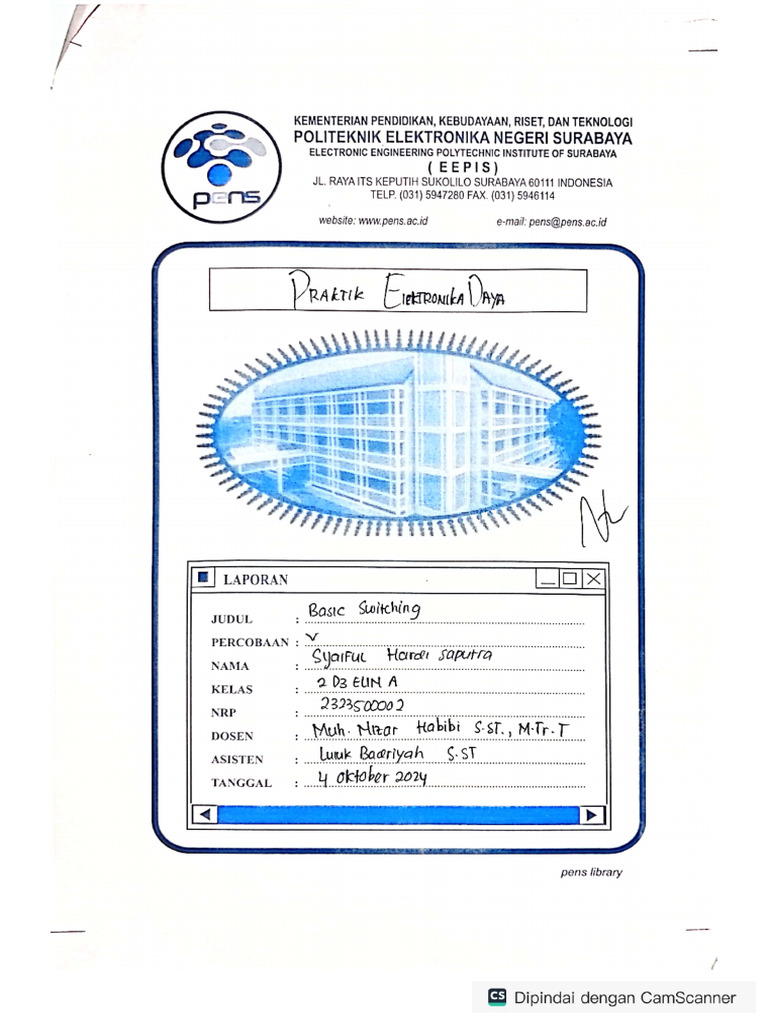 KEMENTERIAN PENDIDIKAN, KEBUDAYAAN, RISET, DAN TEKNOLOGI
POLITEKNIK ELEKTRONIKA NEGERI SURABAYA
ELECTRONIC ENGINEERING POLYTECHNIC INSTITUTE OF SURABAYA
( EEPIS )
JL. RAYA ITS KEPUTIH SUKOLILO SURABAYA 60111 INDONESIA
TELP. (031) 5947280 FAX. (031) 5946114
pens
website: www.pens.ac.id e-mail: pens@pens.ac.id
PRAKTIK ElEKTRONIKA DAYA
LAPORAN
JUDUL : Basic Switching
PERCOBAAN : V
NAMA : Syaiful Hardi Saputra
KELAS : 2 D3 ELIN A
NRP : 2323500002
DOSEN : Muh. Nizar Habibi S.ST., M.Tr.T
ASISTEN : Luluk Badriyah S.ST
TANGGAL : 4 Oktober 2024
pens library
CS Dipindai dengan CamScanner